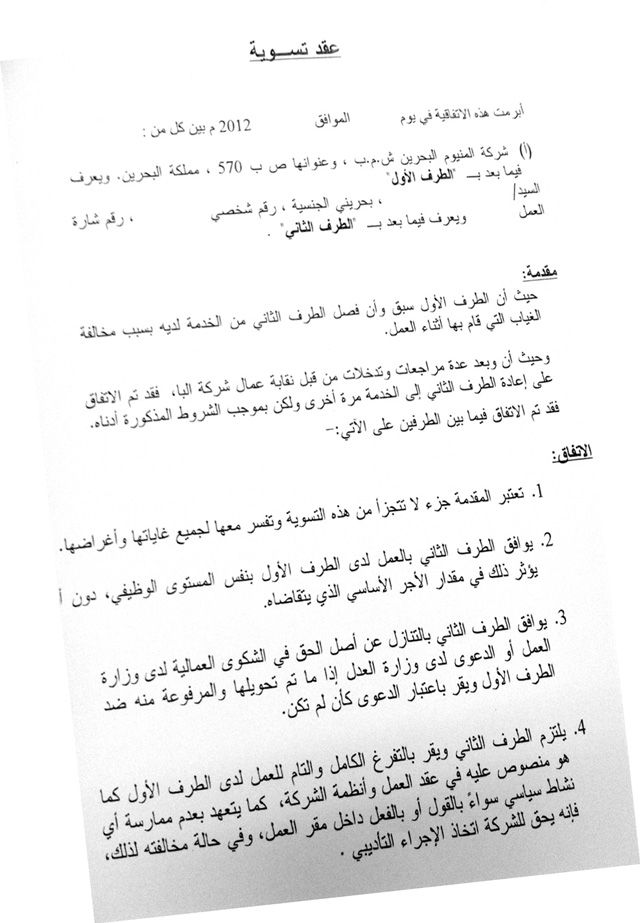 عقد تســـوية
أبرمت هذه الاتفاقية في يوم الموافق 2012 م بين كل من :
(أ) شركة المنيوم البحرين ش.م.ب ، وعنوانها ص ب 570 ، مملكة البحرين. ويعرف
فيما بعد بـــ "الطرف الأول"
السيد/ ، بحريني الجنسية ، رقم شخصي ، رقم شارة
العمل ويعرف فيما بعد بـــ "الطرف الثاني" .
مقدمة:
حيث أن الطرف الأول سبق وأن فصل الطرف الثاني من الخدمة لديه بسبب مخالفة
الغياب التي قام بها أثناء العمل.
وحيث أن وبعد عدة مراجعات وتدخلات من قبل نقابة عمال شركة البا، فقد تم الاتفاق
على إعادة الطرف الثاني إلى الخدمة مرة أخرى ولكن بموجب الشروط المذكورة أدناه.
فقد تم الاتفاق فيما بين الطرفين على الآتي:–
الاتفاق:
1. تعتبر المقدمة جزء لا تتجزأ من هذه التسوية وتفسر معها لجميع غاياتها وأغراضها.
2. يوافق الطرف الثاني بالعمل لدى الطرف الأول بنفس المستوى الوظيفي، دون أ
يؤثر ذلك في مقدار الأجر الأساسي الذي يتقاضاه.
3. يوافق الطرف الثاني بالتنازل عن أصل الحق في الشكوى العمالية لدى وزارة
العمل أو الدعوى لدى وزارة العدل إذا ما تم تحويلها والمرفوعة منه ضد
الطرف الأول ويقر باعتبار الدعوى كأن لم تكن.
4. يلتزم الطرف الثاني ويقر بالتفرغ الكامل والتام للعمل لدى الطرف الأول كما
هو منصوص عليه في عقد العمل وأنظمة الشركة، كما يتعهد بعدم ممارسة أي
نشاط سياسي سواءً بالقول أو بالفعل داخل مقر العمل، وفي حالة مخالفته لذلك،
فإنه يحق للشركة اتخاذ الإجراء التأديبي .